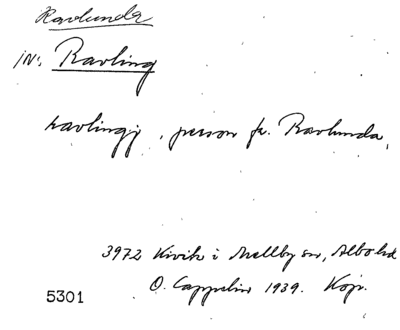 Ravlunda
IN: Ravling
ravlingj, person fr. Ravlunda,
3972 Kivik i Mellby sn, Albo hd
O. Cappelin 1939. Kop.
5301